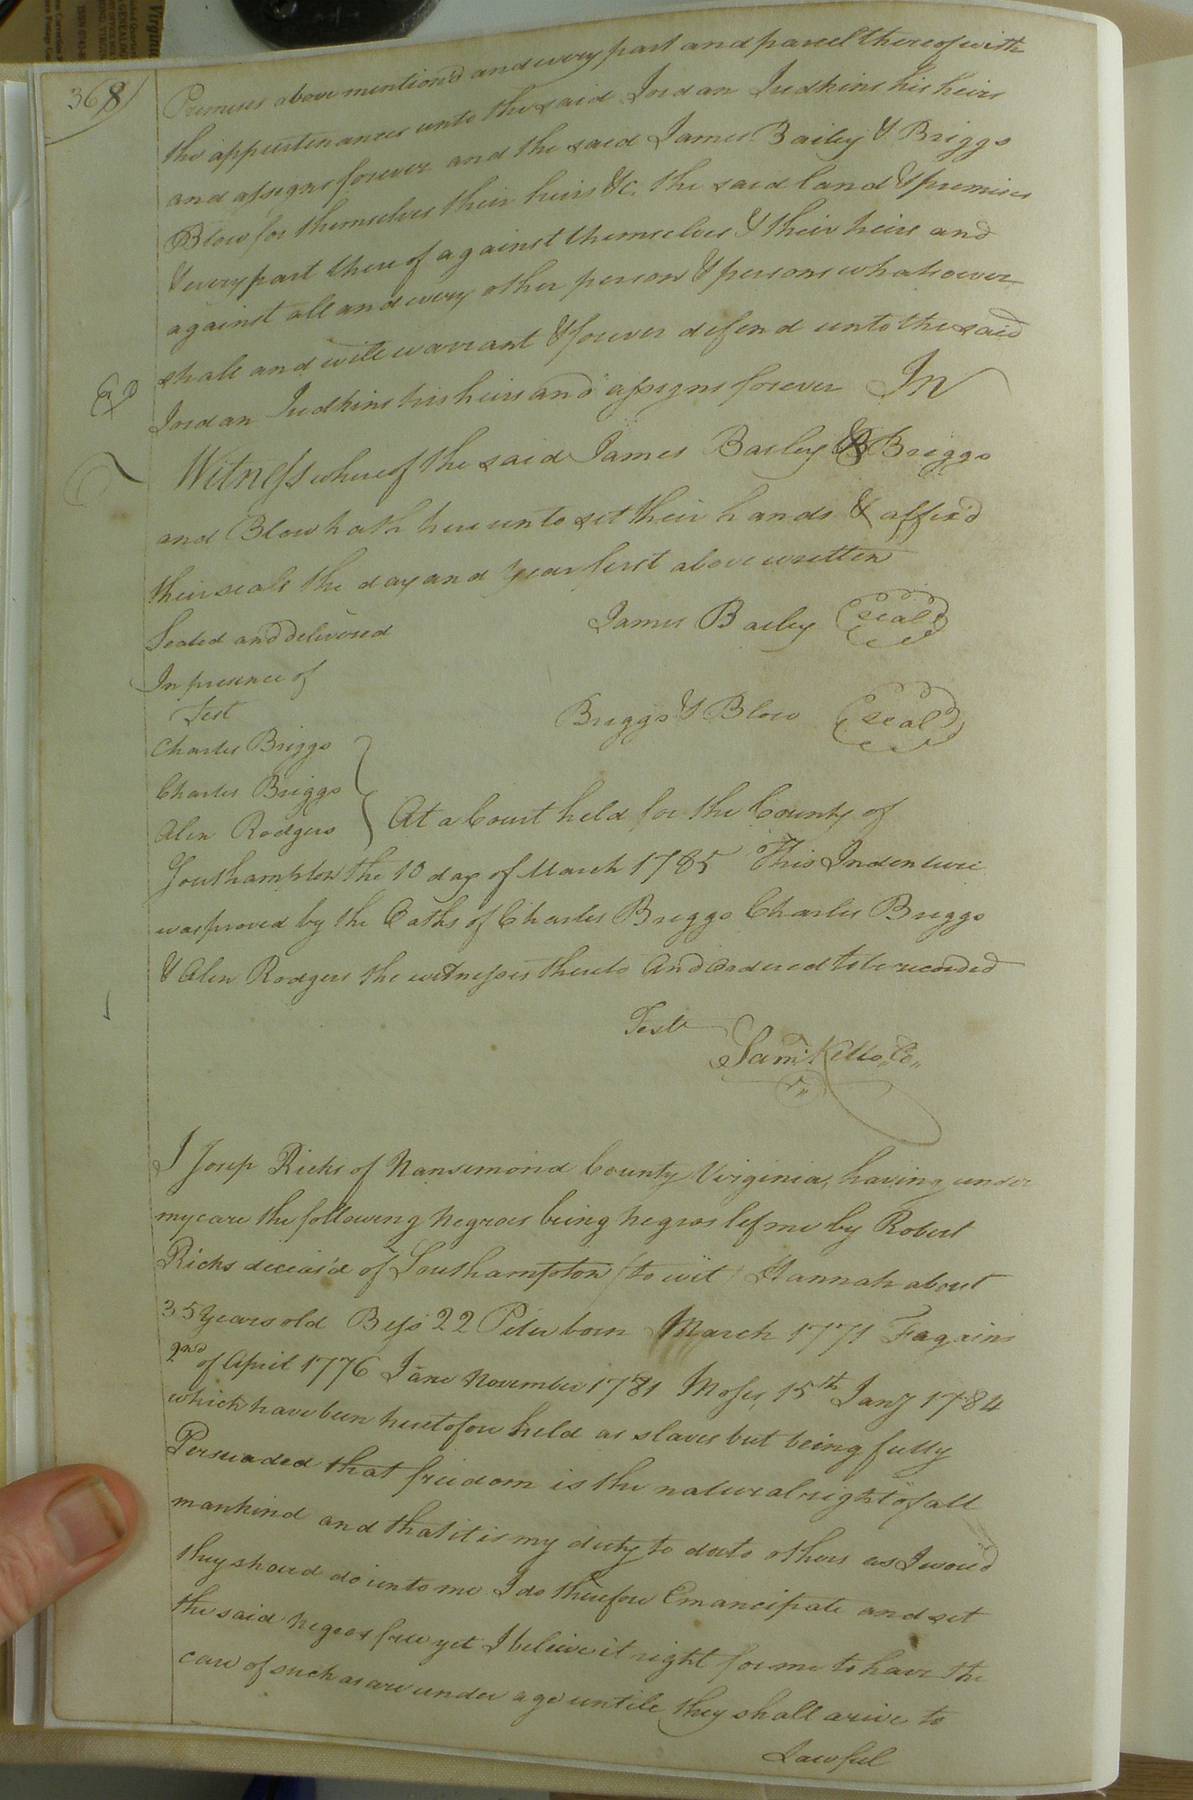 368
Premises above mention'd and every part and parcel thereof with
the appurtenances unto the said Jordan Judkins his heirs
and assigns forever and the said James Bailey & Briggs
Blow for themselves their heirs &c. the said land & premises
& every part thereof against themselves & their heirs and
against all and every other person & persons whatsoever
shall and will warrant & forever defend unto the said
Jordan Judkins his heirs and assigns forever In
Witness whereof the said James Bailey & Briggs
and Blow hath hereunto set their hands & affix'd
their seals the day and year first above written
James Bailey seal
Sealed and delivered
In presence of
Test
Briggs & Blow seal
Charles Briggs
Charles Briggs
Alen Rodgers
At a Court held for the County of
Southampton the 10 day of March 1785 This Indenture
was proved by the Oaths of Charles Briggs Charles Briggs
& Alen Rodgers the witnesses thereto And Ordered to be recorded
Test
Saml Kello
I Josep Ricks of Nansemond County Virginia, having under
my care the following negroes being negros lef me by Robert
Ricks deceas'd of Southampton (to wit) Hannah about
35 Years old Bess 22 Peter born March 1771 Fagains
2nd of April 1776 Jane November 1781 Moses 15th Jany 1784
which have been heretofore held as slaves but being fully
Persuaded that freedom is the natural right of all
mankind and that it is my duty to do to others as I would
they should do unto me I do therefore Emancipate and set
the said negros free yet I believe it right for me to have the
care of such as are under age untile they shall arive to
Lawful